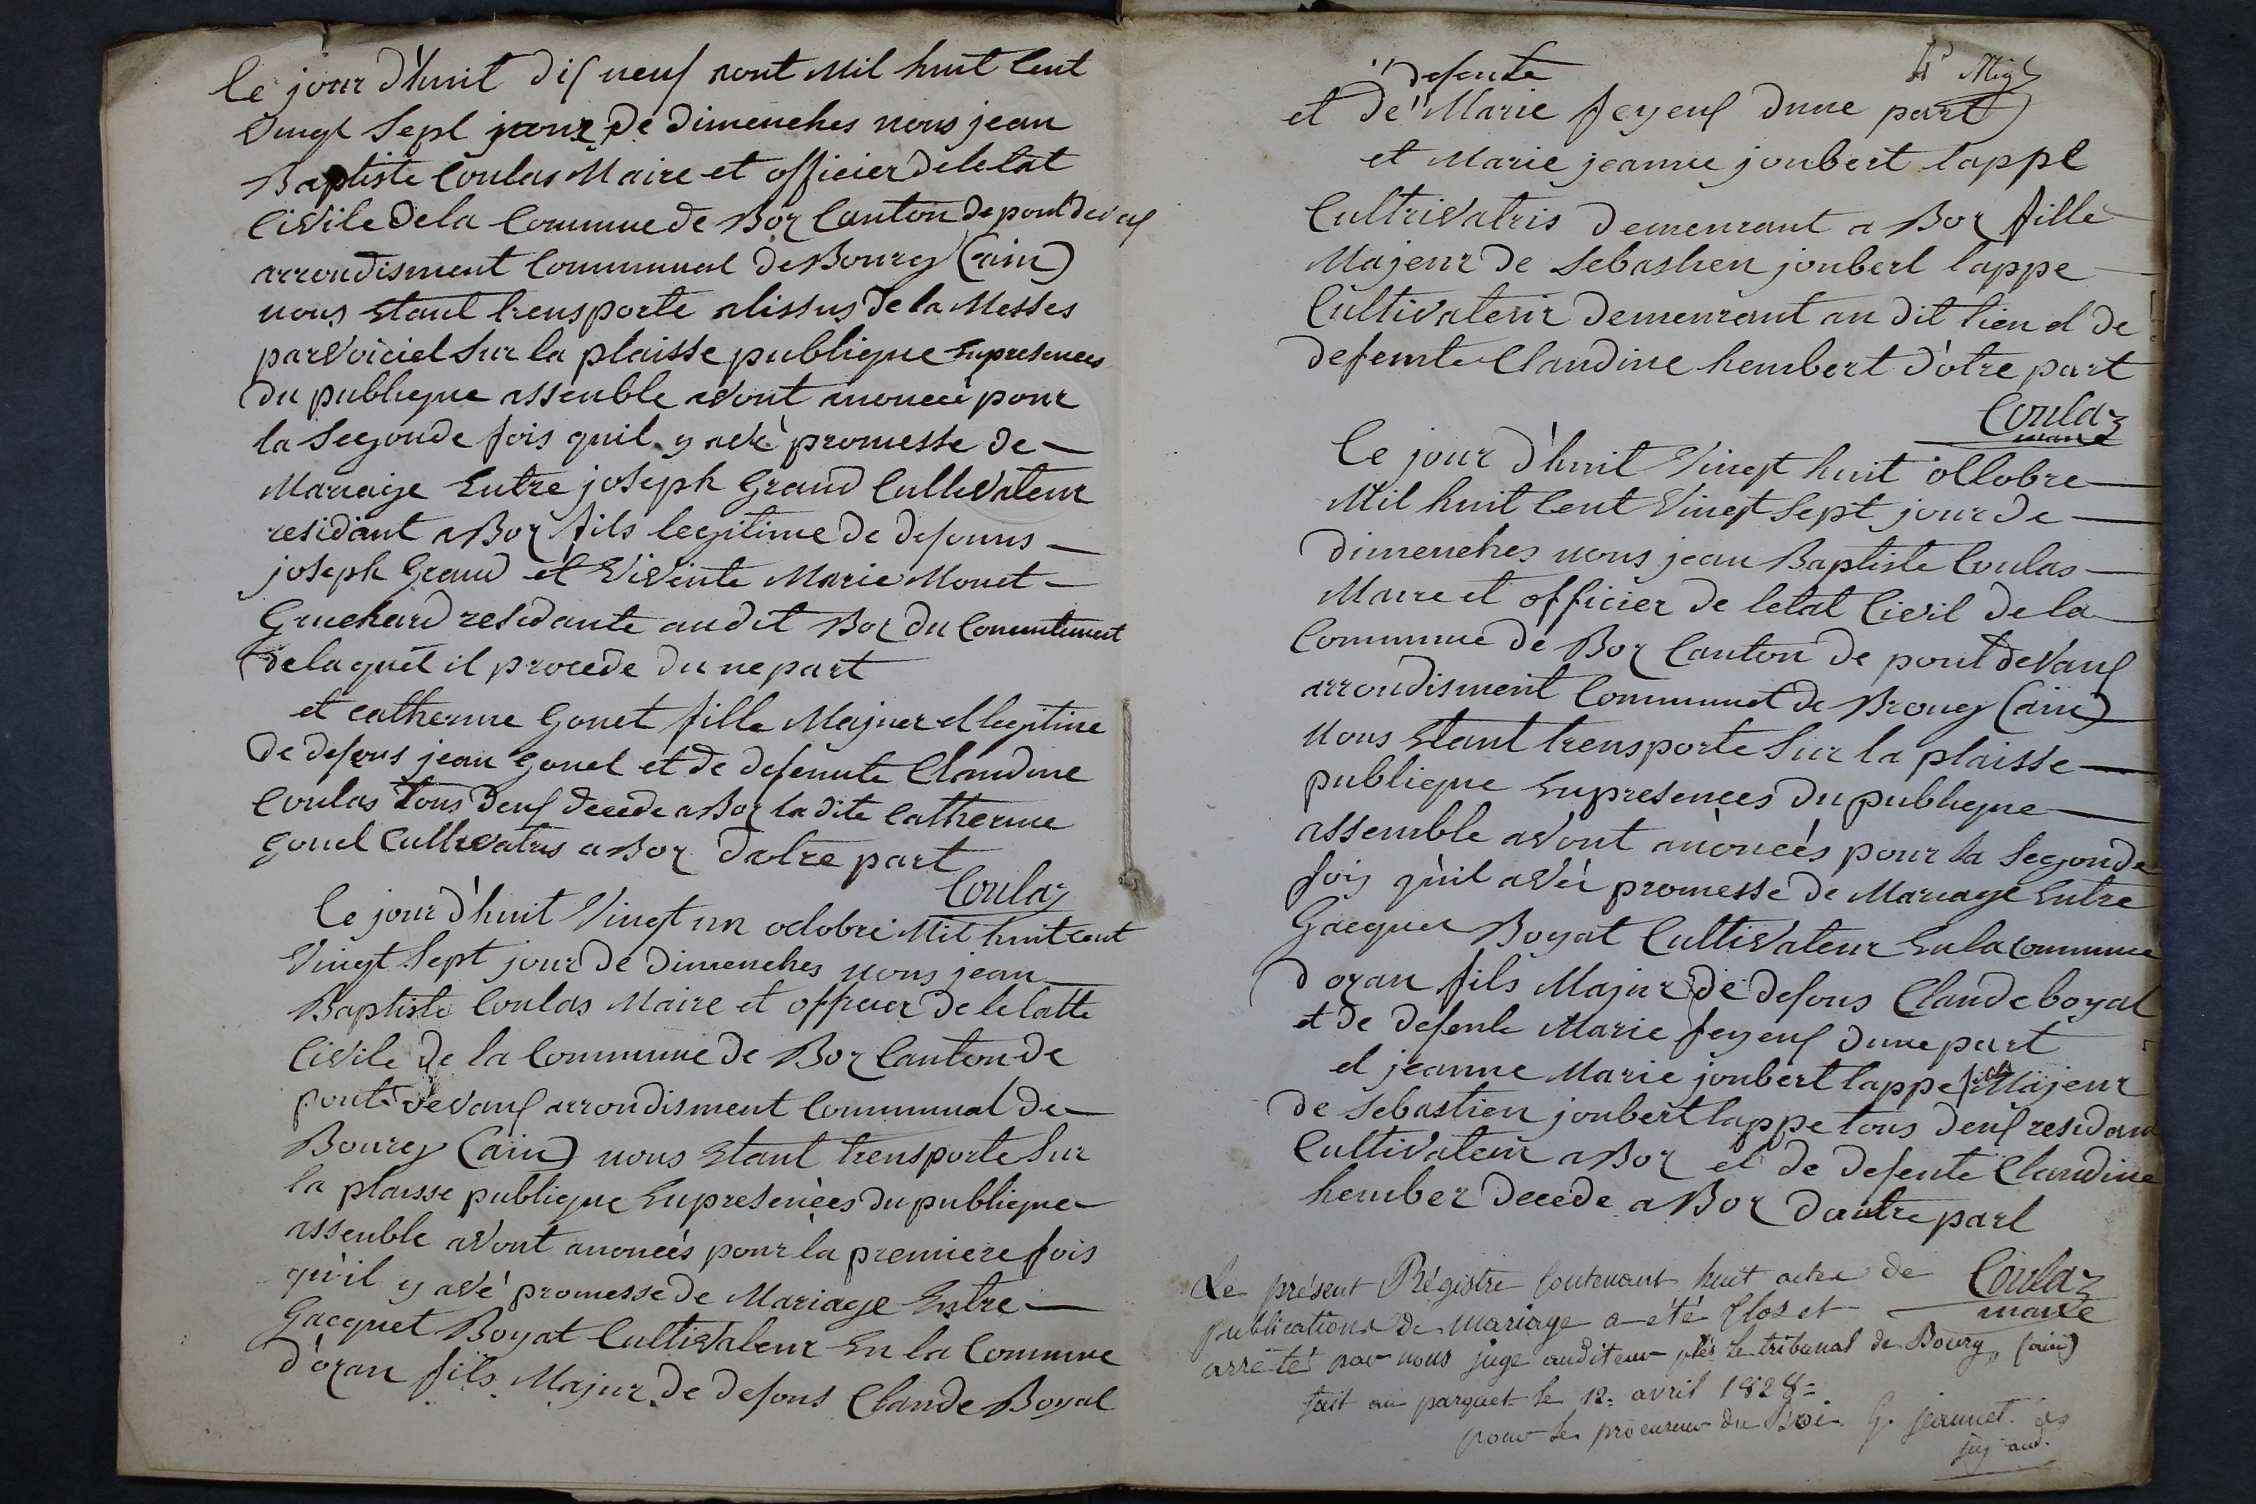 Ce jour d'huit dix neuf aout Mil huit Cent
Vingt Sept jour de dimenches nous jean
Baptiste Coulas Maire et officier deletat
Civile dela Commune de Boz Canton de pontdevaux
arrondisment Communal de Bourg (ain)
nous Etant trensporte alissus de la Messes
parvoiciel Sur la plaisse publieque Enpresences
du publieque assenble avont anoncé pour
la Segonde fois quil y avé promesse de
Mariaige Entre joseph Grand Cultivateur
residant a Boz fils legitime de defouns
joseph Grand et Vivente Marie Monet
Gruchard residante audit Boz du Consentement
delaquél il procede dune part
et catherine Gonet fille Majuer et legitime
De defons jean Gonet et de defeunte Claudine
Coulas tous deux decede a Boz la dite Catherine
Gonet Cultivatris a Boz d'otre part
Coulaz
Ce jour d'huit Vingt un octobre Mil huit cent
Vingt Sept jour de dimenches nous jean
Baptiste Coulas Maire et officier de letatte
Civile de la Commune de Boz Canton de
pont devaux arrondisment Communal de
Bourg (ain) nous Etant trensporte Sur
la plaisse publieque Enpresences du publieque
assenble avont anoncés pour la premiere fois
qu'il y avé promesse de Mariage Entre
Gacquet Boyat Cultivateur En la Commune
d'ozan fils Majur de defons Claude Boyat
4e
defente
et de " Marie feyeux dune part
et Marie jeanne joubert lappe
Cultrivatris demeurant a Boz fille
Majeur de Sebastien joubert lappe
Cultivateur demeurant au dit lieu et de
defeunte Claudine hembert d'otre part
Coulaz
maire
Ce jour d'huit Vingt huit octobre
Mil huit Cent Vingt Sept jour de
dimenches nous jean Baptiste Coulas
Maire et officier de letat Civil de la
Commune de Boz Canton de pont devaux
arrondisment Communal de Broug (ain)
Nous Etant trensporte Sur la plaisse
publieque Enpresences du publieque
assemble avont anoncés pour la Segonde
fois qu'il avéi promesse de Mariage Entre
Gacquet Boyat Cultivateur En la Commune
d ozan fils Majur de defons Claude boyat
et de defente Marie feyeux dune part
et jeanne Marie joubert lappe fille Majeur
de Sebastien joubert lappe tous deux residant
Cultivateur a Boz et de defente Claudine
hember decede a Boz dautre part
Coulaz
maire
Le présent Régistre Contenant huit actes de
publications de mariage a été Clos et
arrêté par nous juge auditeur près le tribunal de Bourg, (ain)
fait au parquet le 12. avril 1828=
pour le procureur du Roi. G. Jeannet.
jug aud.